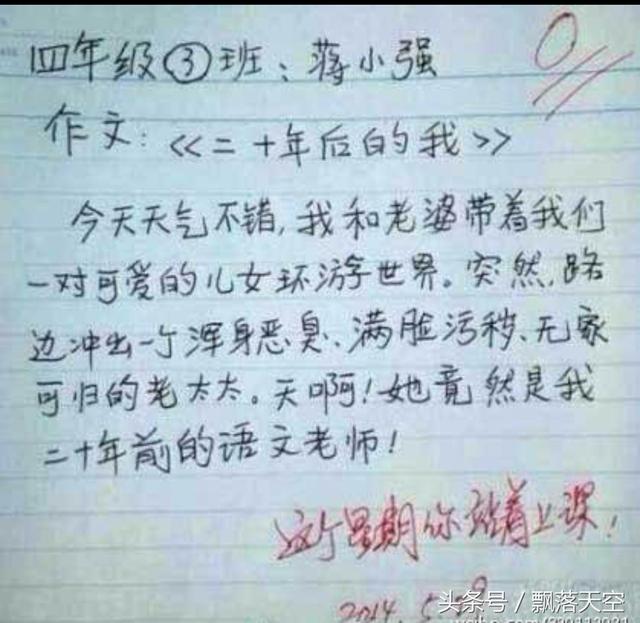 四年级③班:蒋小强
0
作文:《二十年后的我》
今天天气不错,我和老婆带着我们
一对可爱的儿女环游世界。突然,路
边冲出一个浑身恶臭、满脸污秽、无家
可归的老太太。天啊!她竟然是我
二十年前的语文老师!
这个星期你站着上课!
2014.5.
头条号/飘落天空